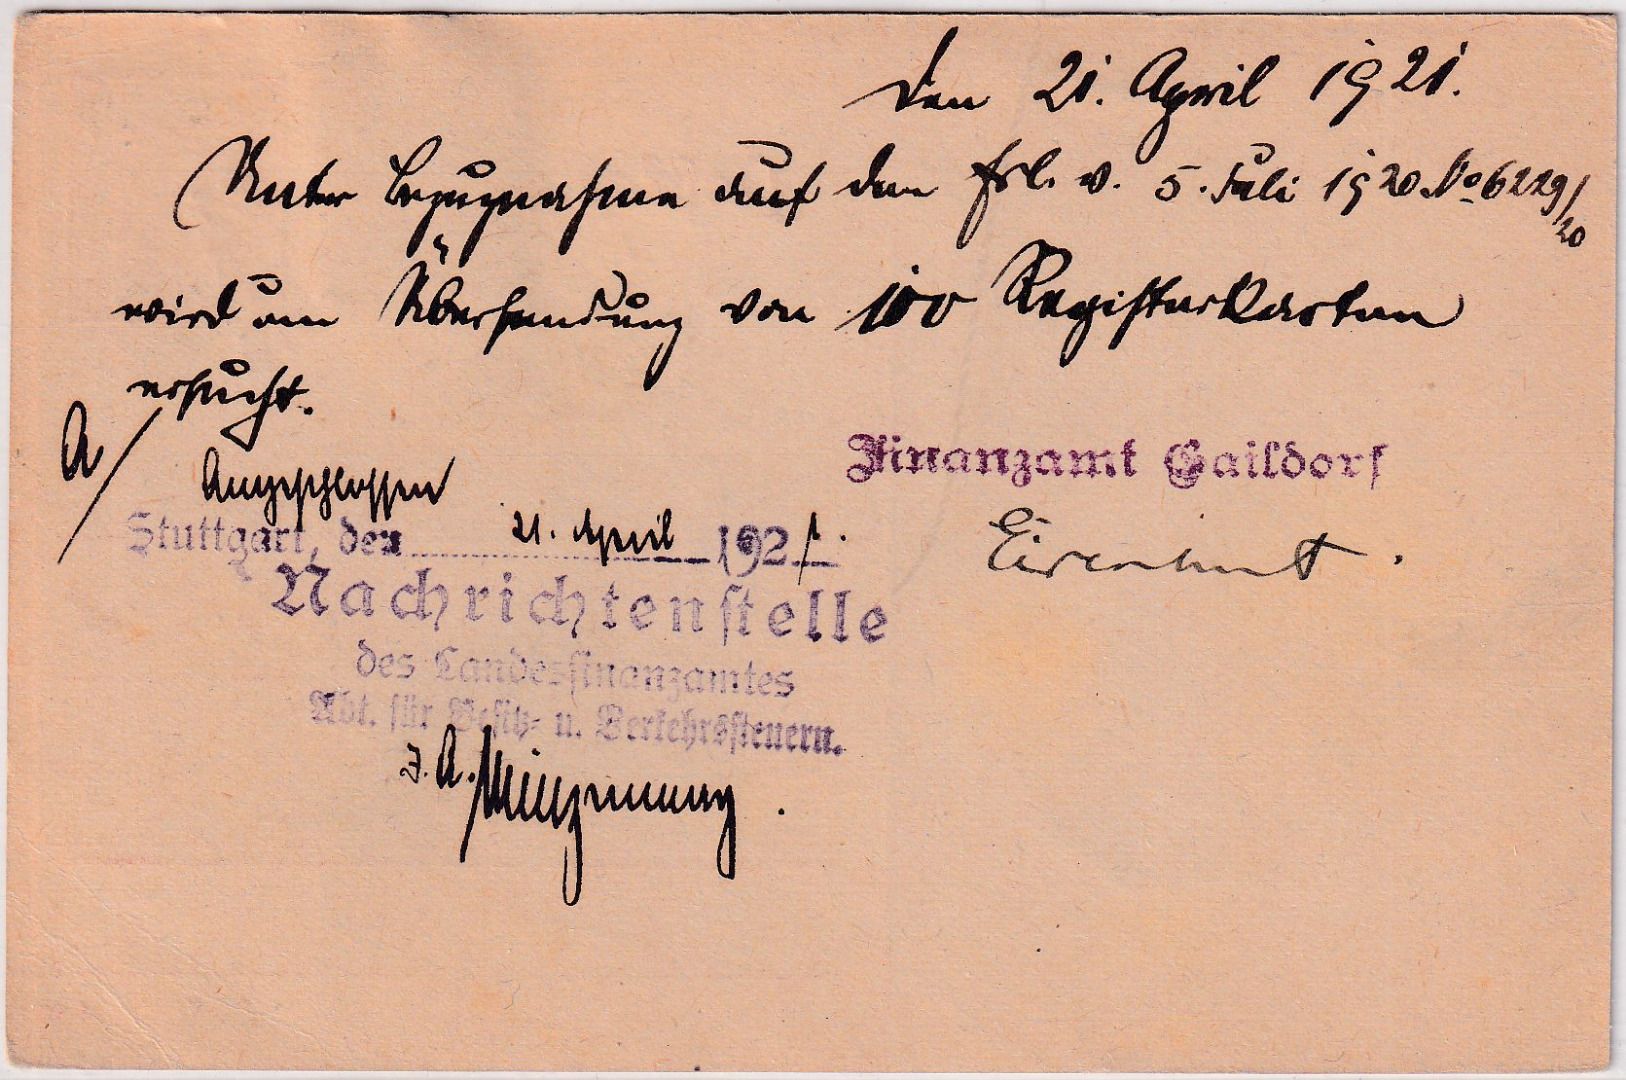 den 21. April 1921.
Unter Bezugnahme auf den Erl. v. 5. Juli 1920 No 6229/20
wird um Übersendung von 100 Registerkarten
ersucht.
Finanzamt Gaildorf
A/
Angeschlossen
Stuttgart, den 21. April 1921.
Eisenhut.
Nachrichtenstelle
des Landesfinanzamtes
Abt. für Besitz- u. Verkehrssteuern.
J. A.